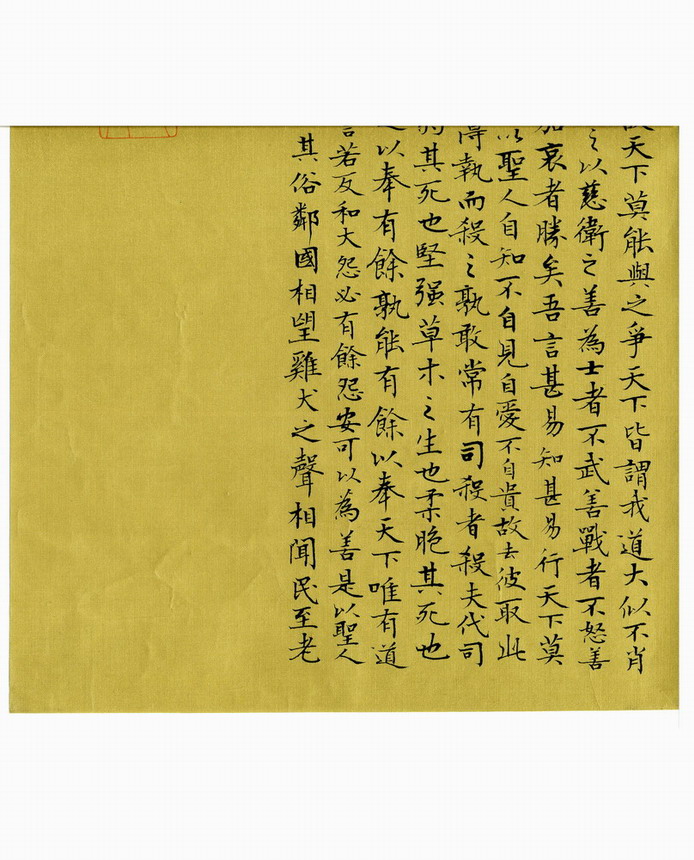 天下莫能與之爭天下皆謂我道大似不肖
之以慈衛之善為士者不武善戰者不怒善
哀者勝矣吾言甚易知甚易行天下莫
以聖人自知不自見自愛不自貴故去彼取此
得執而殺之孰敢常有司殺者殺夫代司
其死也堅强草木之生也柔脆其死也
以奉有餘孰能有餘以奉天下唯有道
言若反和大怨必有餘怨安可以為善是以聖人
其俗鄰國相望雞犬之聲相聞民至老